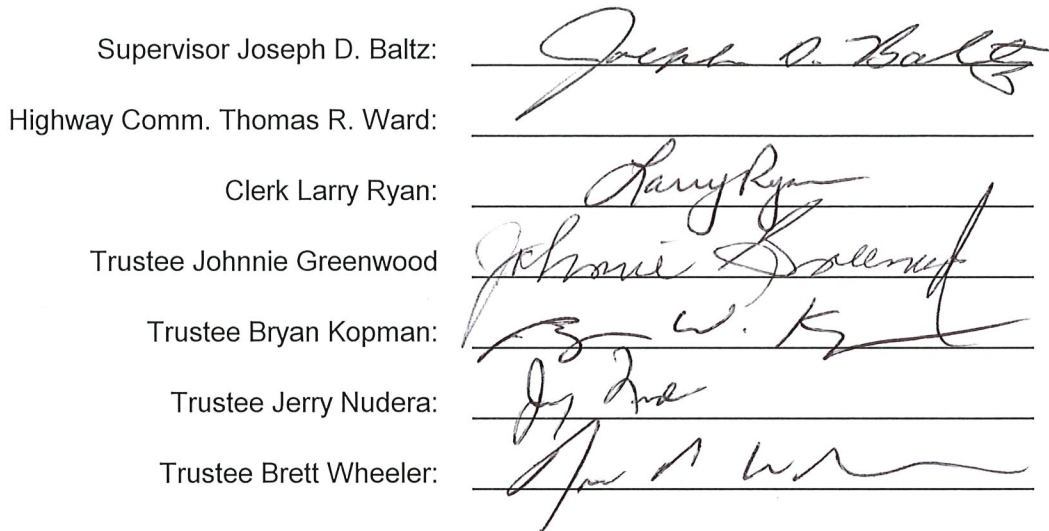 Supervisor Joseph D. Baltz: Joseph D. Baltz
Highway Comm. Thomas R. Ward:
Clerk Larry Ryan: Larry Ryan
Trustee Johnnie Greenwood Johnnie Greenwood
Trustee Bryan Kopman: W.
Trustee Jerry Nudera:
Trustee Brett Wheeler: